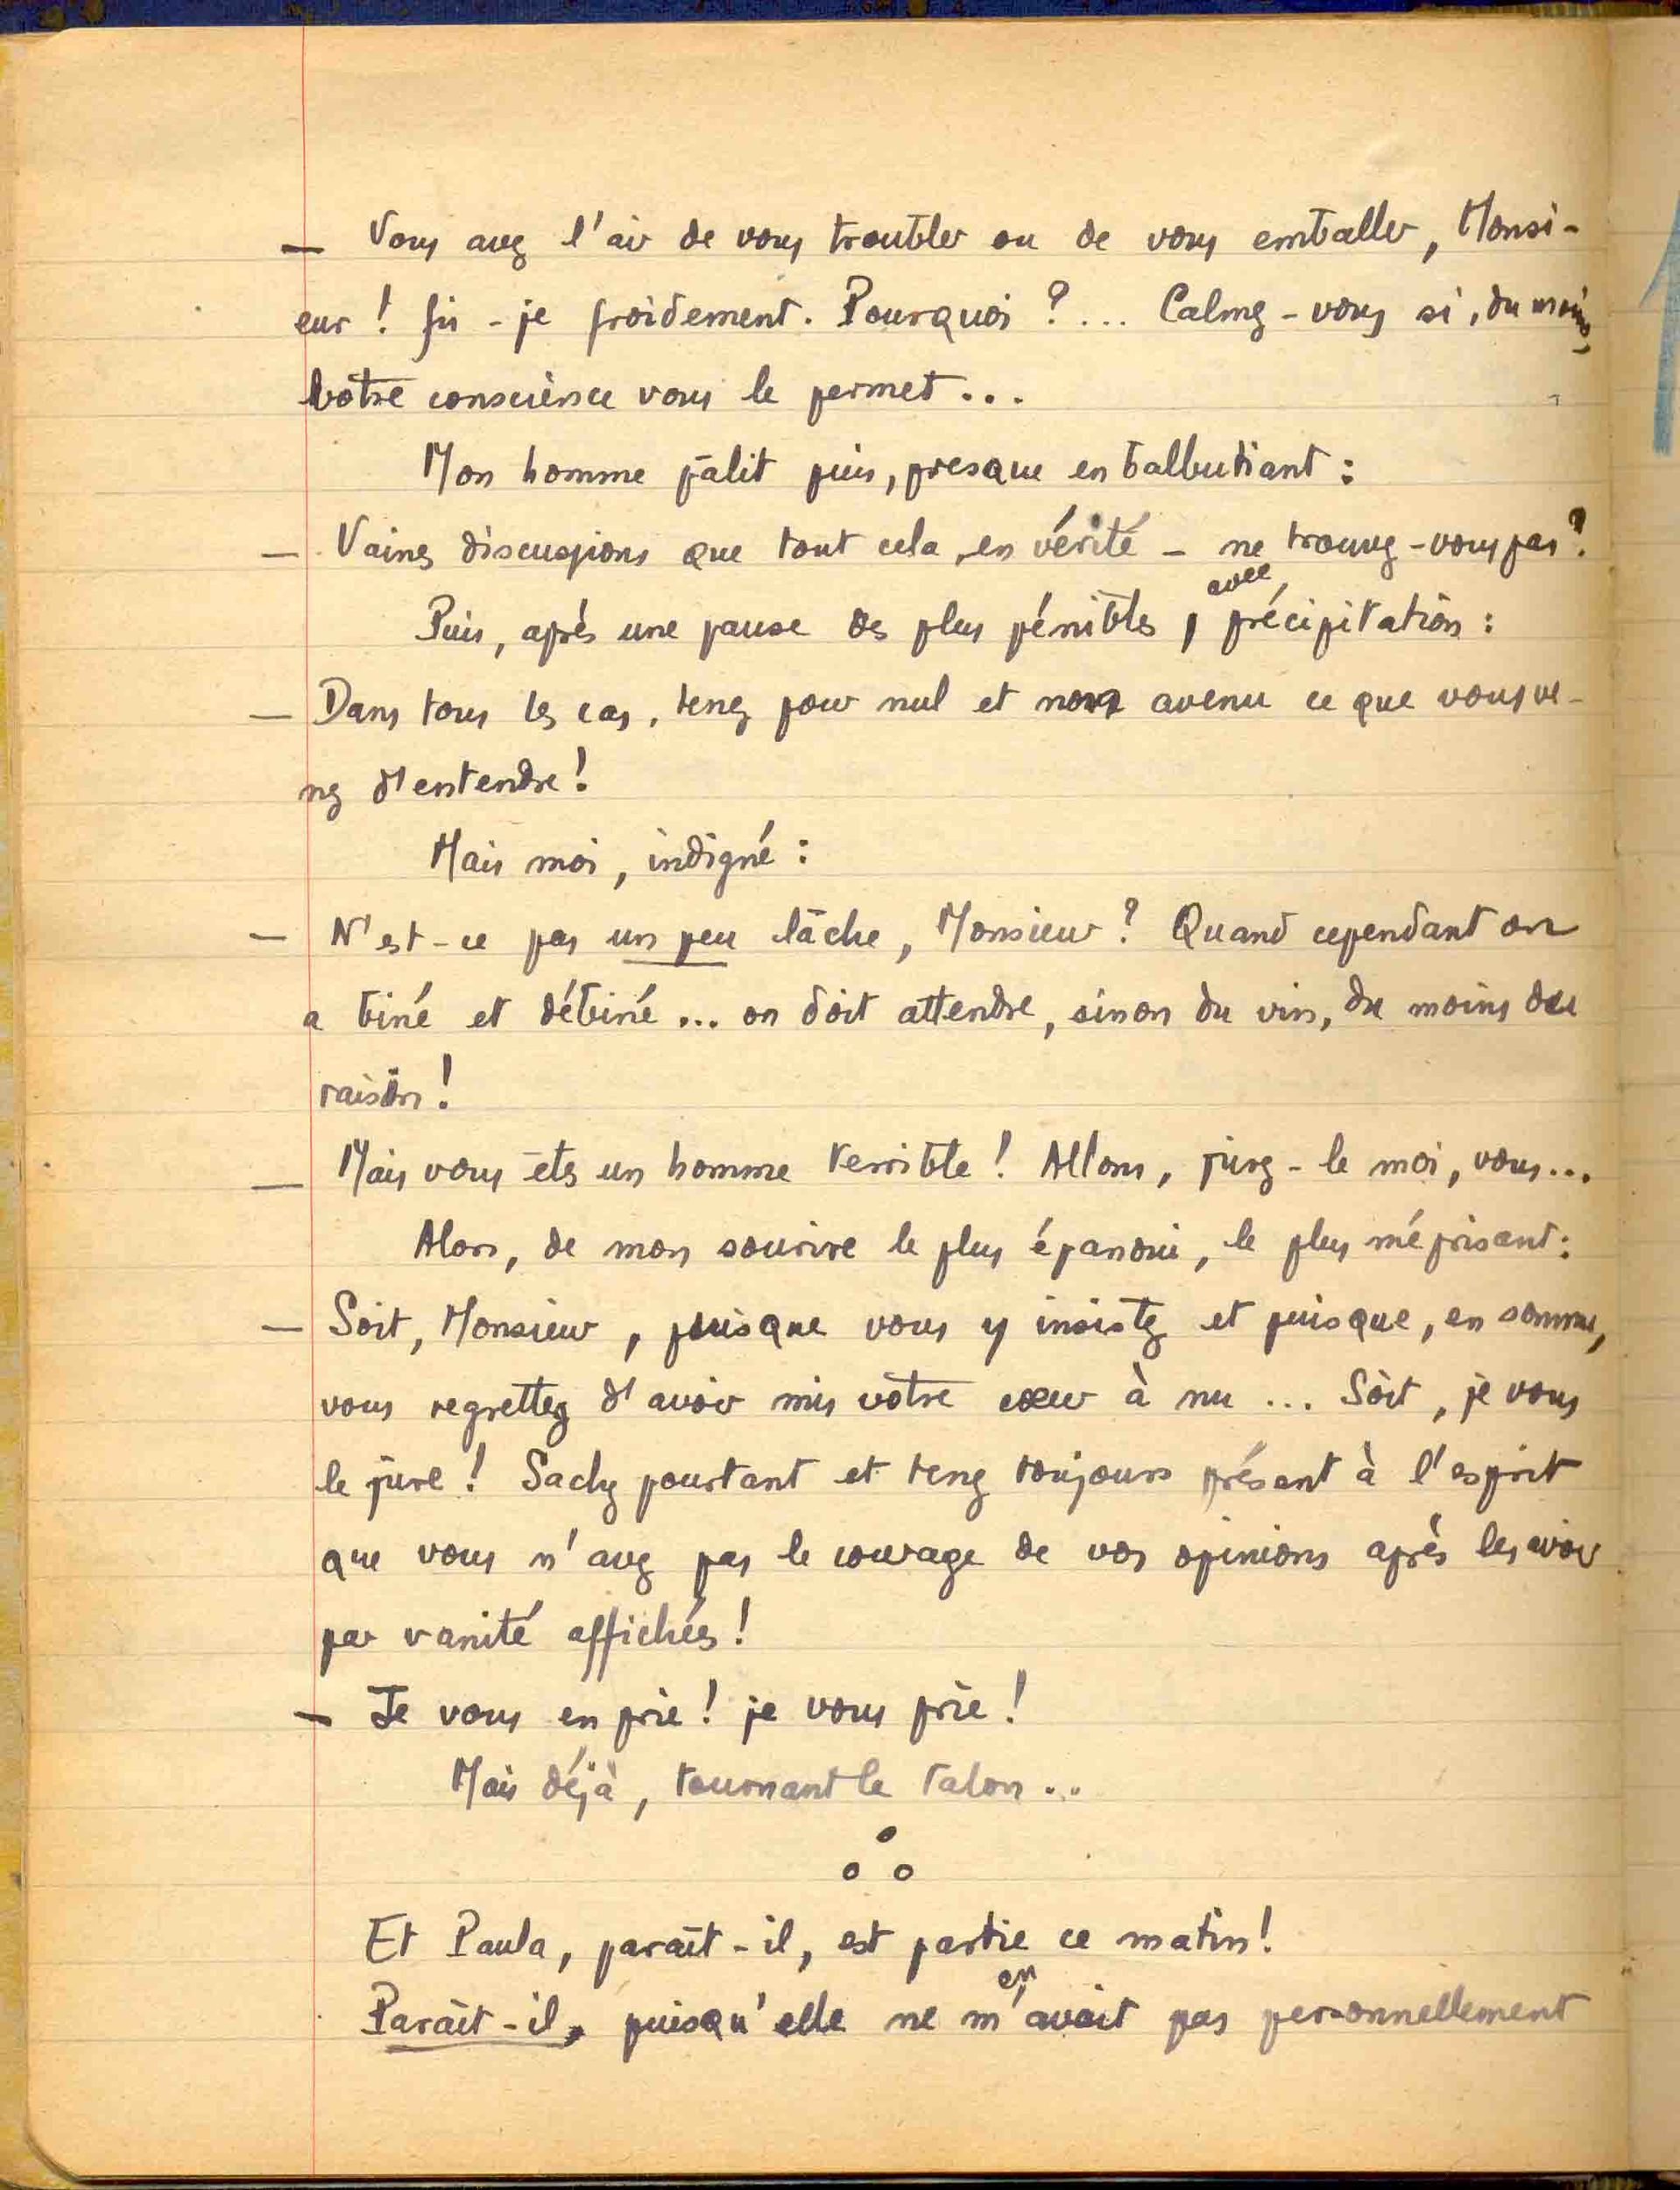 — Vous avez l'air de vous troubler ou de vous emballer, Monsi-
eur ! fis-je froidement. Pourquoi ?... Calmez-vous si, du moins,
votre conscience vous le permet...
Mon homme pâlit puis, presque en balbutiant :
— Vaines discussions que tout cela, en vérité — ne trouvez-vous pas ?
Puis, après une pause des plus pénibles, avec précipitation :
— Dans tous les cas, tenez pour nul et non avenu ce que vous ve-
nez d'entendre !
Mais moi, indigné :
— N'est-ce pas un peu lâche, Monsieur ? Quand cependant on
a biné et débiné... on doit attendre, sinon du vin, du moins du
raisin !
— Mais vous êtes un homme terrible ! Allons, jurez-le moi, vous...
Alors, de mon sourire le plus épanoui, le plus méprisant :
— Soit, Monsieur, puisque vous y insistez et puisque, en somme,
vous regrettez d'avoir mis votre cœur à nu... Soit, je vous
le jure ! Sachez pourtant et tenez toujours présent à l'esprit
que vous n'avez pas le courage de vos opinions après les avoir
par vanité affichées !
— Je vous en prie ! je vous prie !
Mais déjà, tournant le talon...
Et Paula, paraît-il, est partie ce matin !
Paraît-il, puisqu'elle ne m'en avait pas personnellement